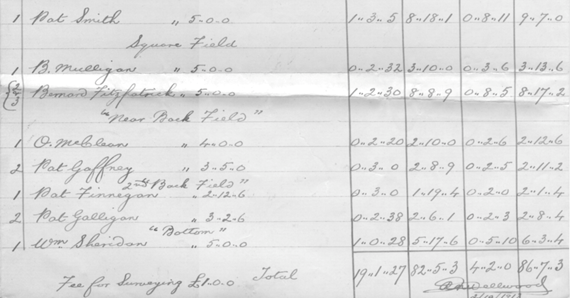 1 Pat Smith " 5-0-0 1"3"5 8"18"1 0"8"11 9"7"0
Square Field
1 B. Mulligan " 5-0-0 0-2"32 3"10"0 0"3"6 3"13"6
{2/3 Bernard Fitzpatrick " 5-0-0 1"2"30 8"8"9 0"8"5 8"17"2
"Near Back Field"
1 O. McClean " 4-0-0 0"2"20 2"10"0 0"2"6 2"12"6
2 Pat Gaffney " 3-5-0 0"3"0 2"8"9 0"2"5 2"11"2
2nd Back Field"
1 Pat Finnegan " 2-12-6 0"3"0 1"19"4 0"2"0 2"1"4
2 Pat Galligan " 3-2-6 0"2"38 2"6"1 0"2"3 2"8"4
"Bottom"
1 Wm Sheridan " 5-0-0 1"0"28 5"17"6 0"5"10 6"3"4
Fee for Surveying £1-0-0 Total 19"1"27 82"5"3 4"2"0 86"7"3
Wellwood